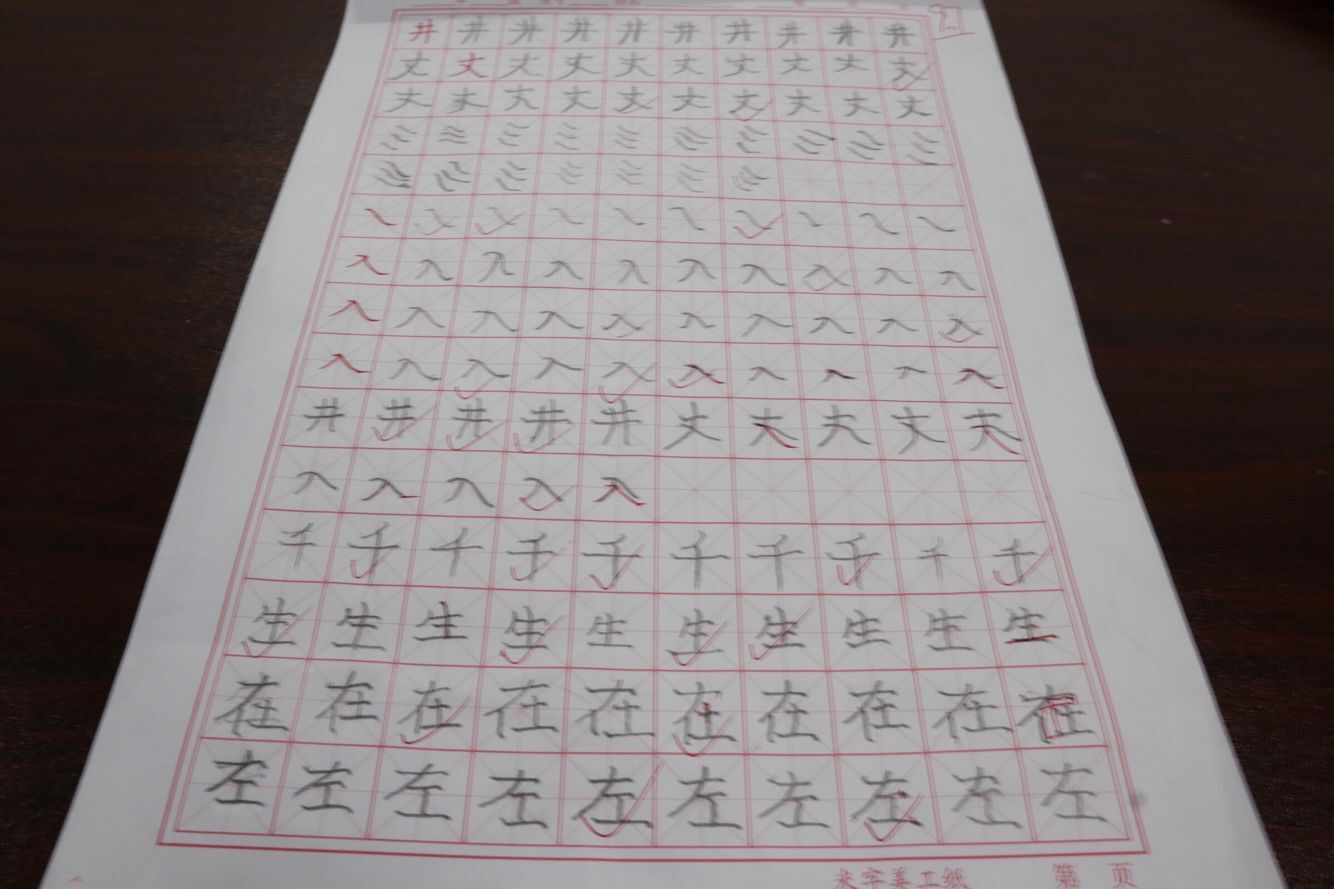 井井井井井井井井井井
丈丈丈丈丈丈丈丈丈丈
丈丈丈丈丈丈丈丈丈丈
入入入入入入入入入入
入入入入入入入入入入
入入入入入入入入入入
井井井井井丈丈丈丈丈
入入入入入
千千千千千千千千千千
生生生生生生生生生生
在在在在在在在在在在
左左左左左左左左左左
米字美工纸 第 页